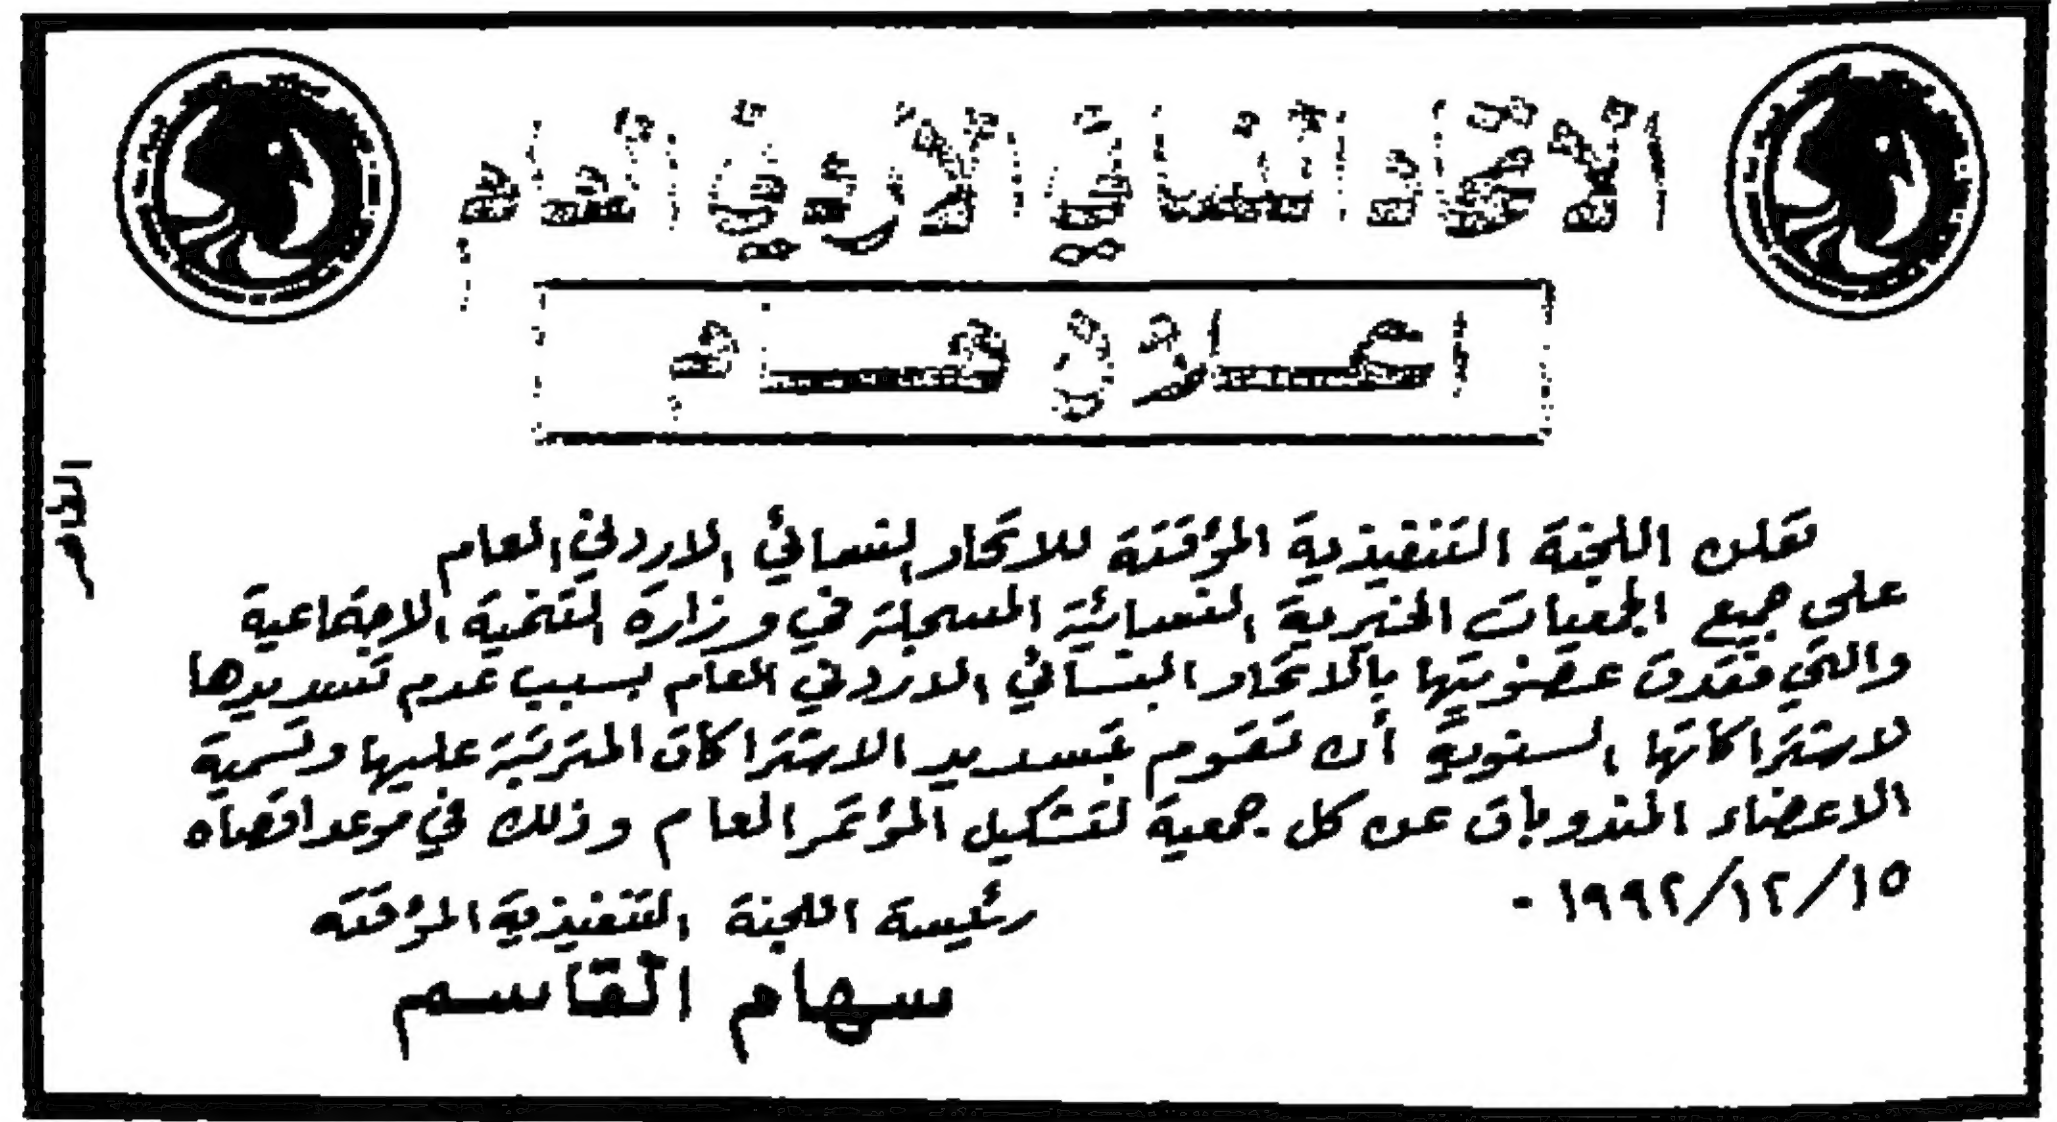 الاتحاد النسائي الاردني العام
اعلان هام
تعلن اللجنة التنفيذية المؤقتة للاتحاد النسائي الاردني العام
على جميع الجمعيات الخيرية النسائية المسجلة في وزارة التنمية الاجتماعية
والتي فقدت عضويتها بالاتحاد النسائي الاردني العام بسبب عدم تسديدها
لاشتراكاتها السنوية أن تقوم بتسديد الاشتراكات المترتبة عليها وتسمية
الاعضاء المندوبات عن كل جمعية لتشكيل المؤتمر العام وذلك في موعد اقصاه
١٥/١٢/١٩٩٢ -
رئيسة اللجنة التنفيذية المؤقته
سهام القاسم